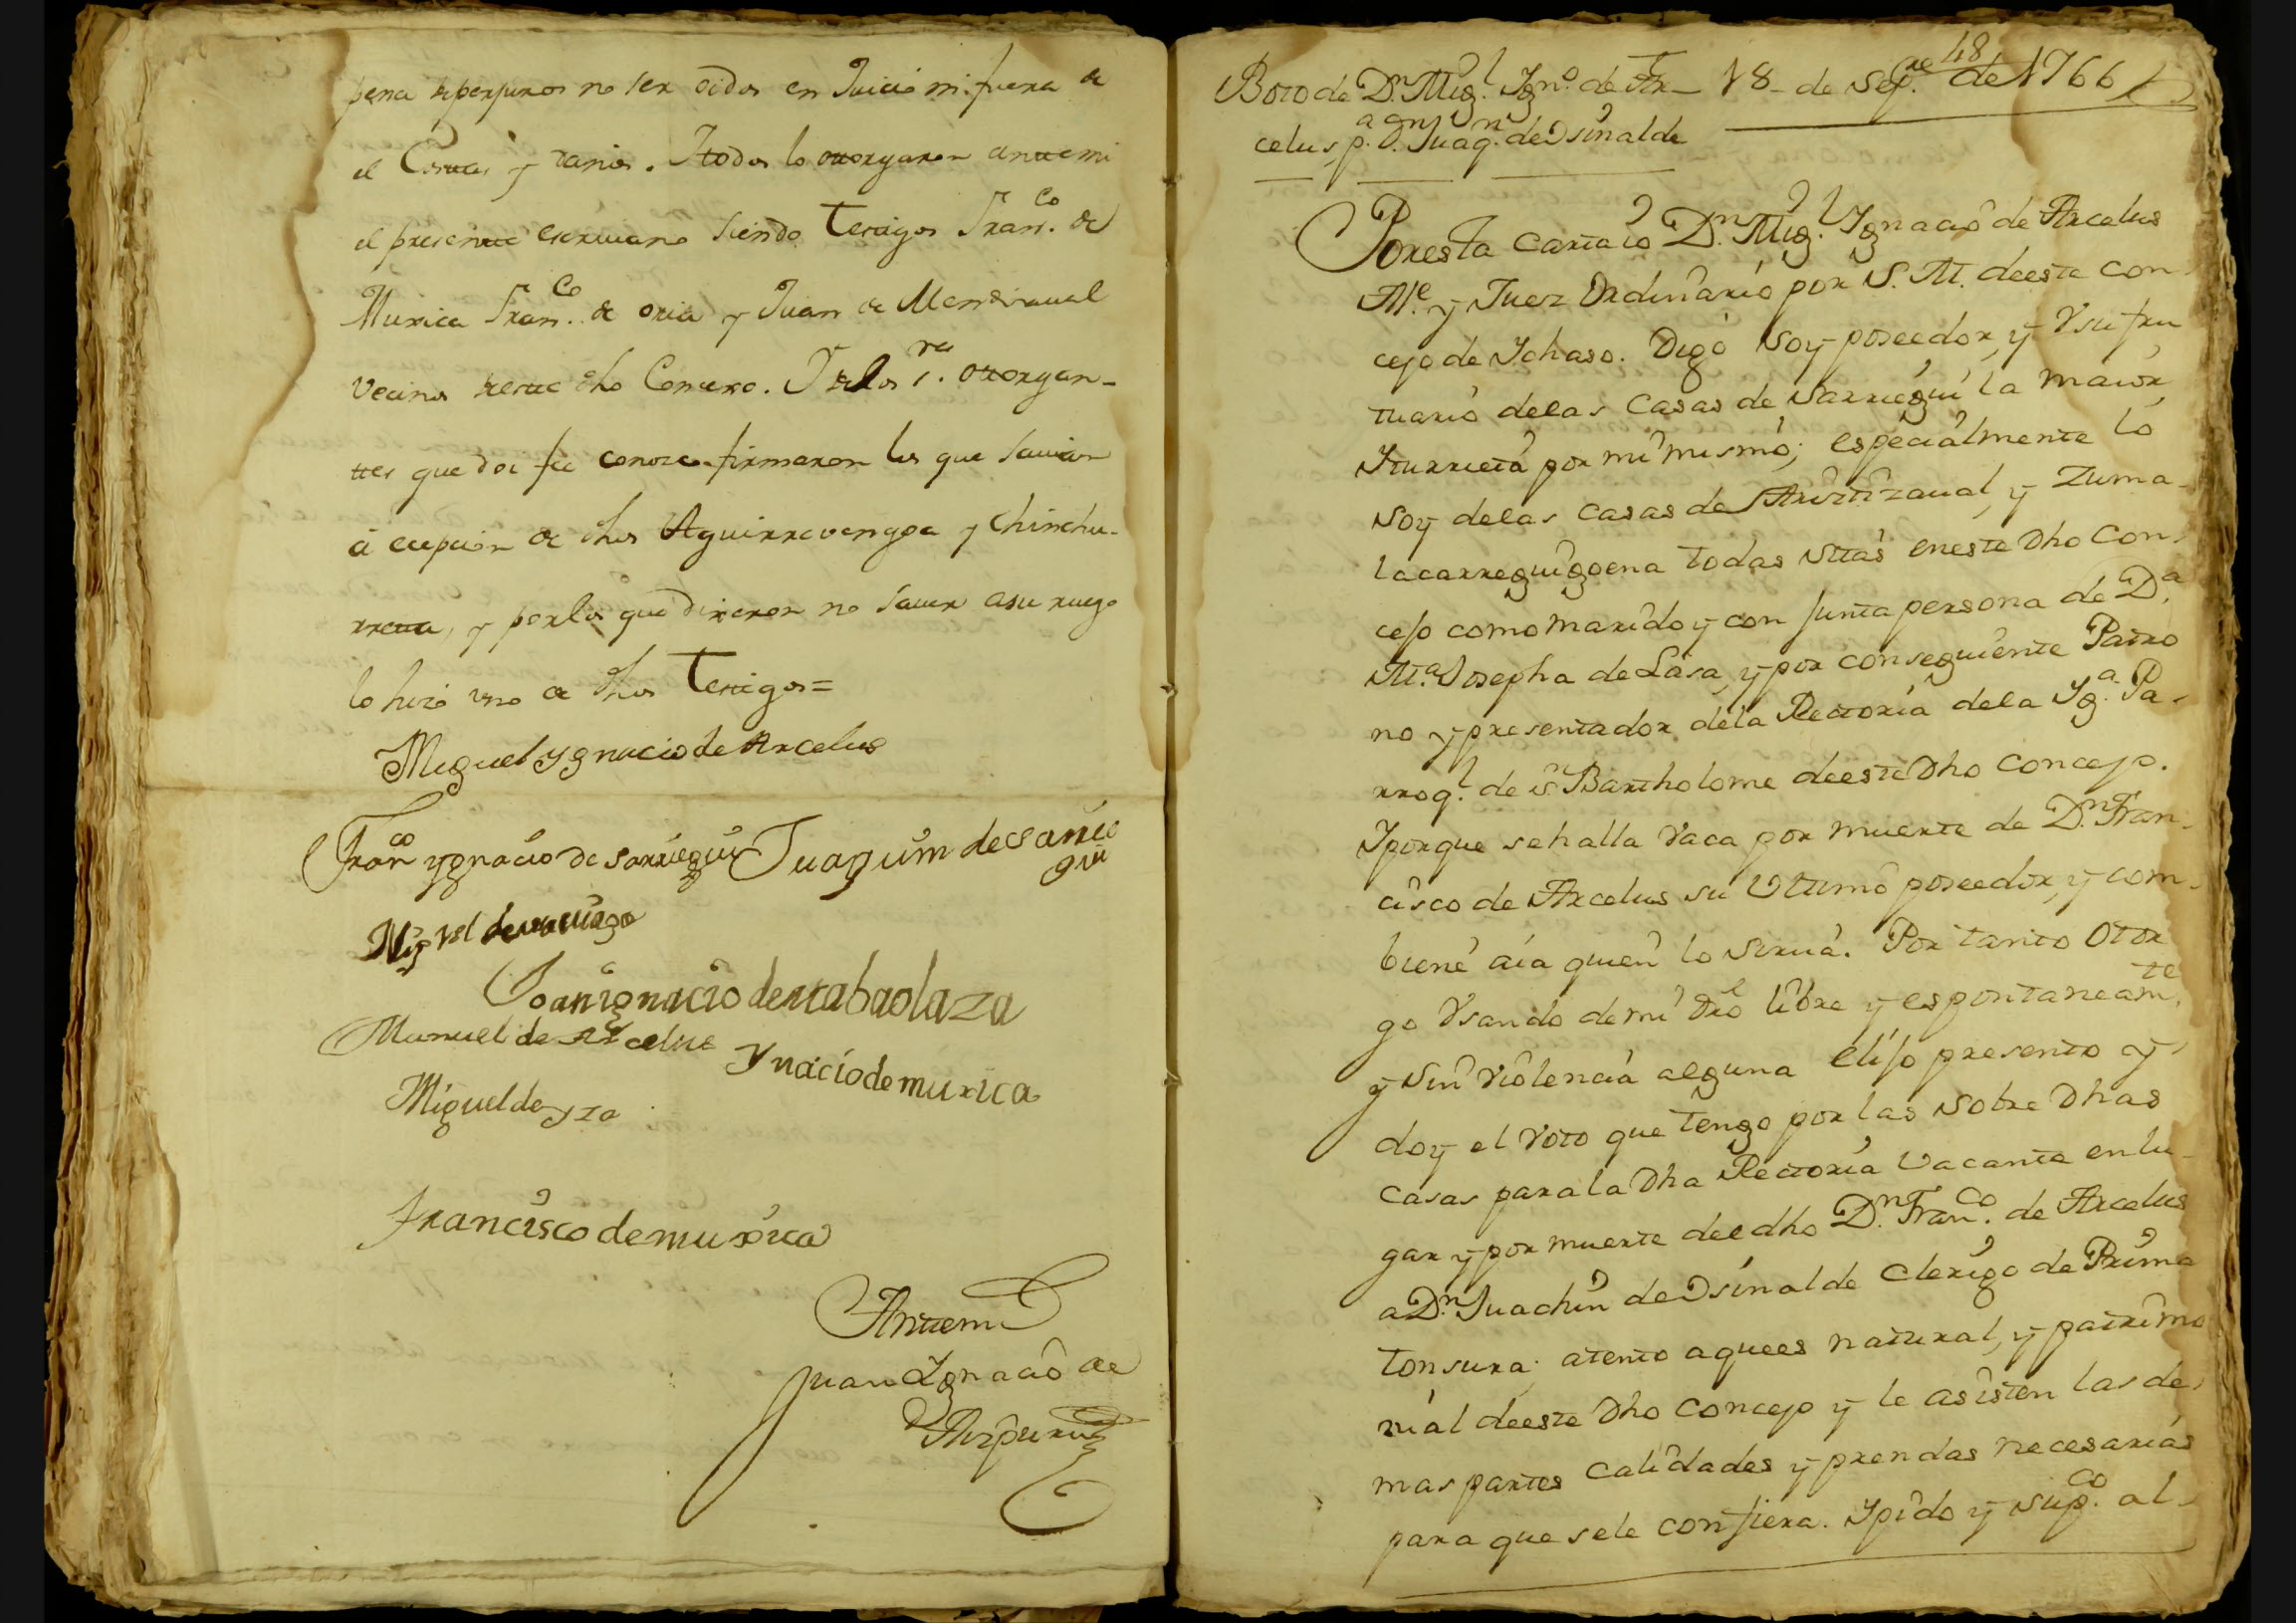 pena de perjuros no ser oidos en Juicio ni fuera de
el Costas y danios. Y todos lo otorgaron antemi
el presente escriuano siendo Testigos Fran.co de
Murica Fran.co de oria y Juan de Mendiraual
vecinos deste dho Concexo. Y de los s.res otorgan-
tes que doi fee conozco firmaron los que sauian
á ecepcion de dhos Aguirrevengoa y Chinchu-
rreta, y por los que dixeron no sauer asu ruego
lo hizo vno de dhos Testigos=
Miguel Ygnacio de Arcelus
Fran.co ygnacio de sarriegui Juaquim de sarrie
gui
Joan ignacio de
Manuel de Arcelus
Ynacio de murica
Miguel de yza
Francisco de muxica
Antemi
Juan Ygnacio de
Aizpuru
48
Boto de D.n Mig.l Ygn.o de Ar- 18- de Sep.re de 1766
celus, p.a D.n Juaq.n de Osinalde
Por esta carta io D.n Mig.l Ygnacio de Arcelus
Al.e y Juez Ordinario por S. M. deeste con-
cejo de Ychaso. Digo soy poseedor, y Vsufru
tuario delas Casas de Sarriegui la maior,
Yturrieta por mi mismo; especialmente lo
soy delas casas de Ariztizaual, y Zuma-
lacarreguigoena todas sitas eneste dho Con-
cejo como marido y conjunta persona de D.a
M.a Josepha de Lasa, y por conseguiente Patro
no y presentador dela Rectoria dela Yg.a Pa-
rroq.l de S.n Bartholome deeste dho Concejo.
Yporque sehalla Vaca por muerte de D.n Fran-
cisco de Arcelus su Vltimo poseedor, y com-
biene aia quien lo sirua. Por tanto Otor
go Vsando demi dro libre y espontaneam.te
y sin violencia alguna elijo presento y
doy el Voto que tengo por las sobre dhas
Casas parala dha Rectoria Vacante enlu-
gar y por muerte deldho D.n Fran.co de Arcelus
a D.n Juachin de Osinalde Clerigo de Prima
tonsura: atento aquees natural, y patrimo
nial deeste dho Concejo y le asisten las de-
mas partes calidades y prendas necesarias
para que sele confiera. Ypido y sup.co al-